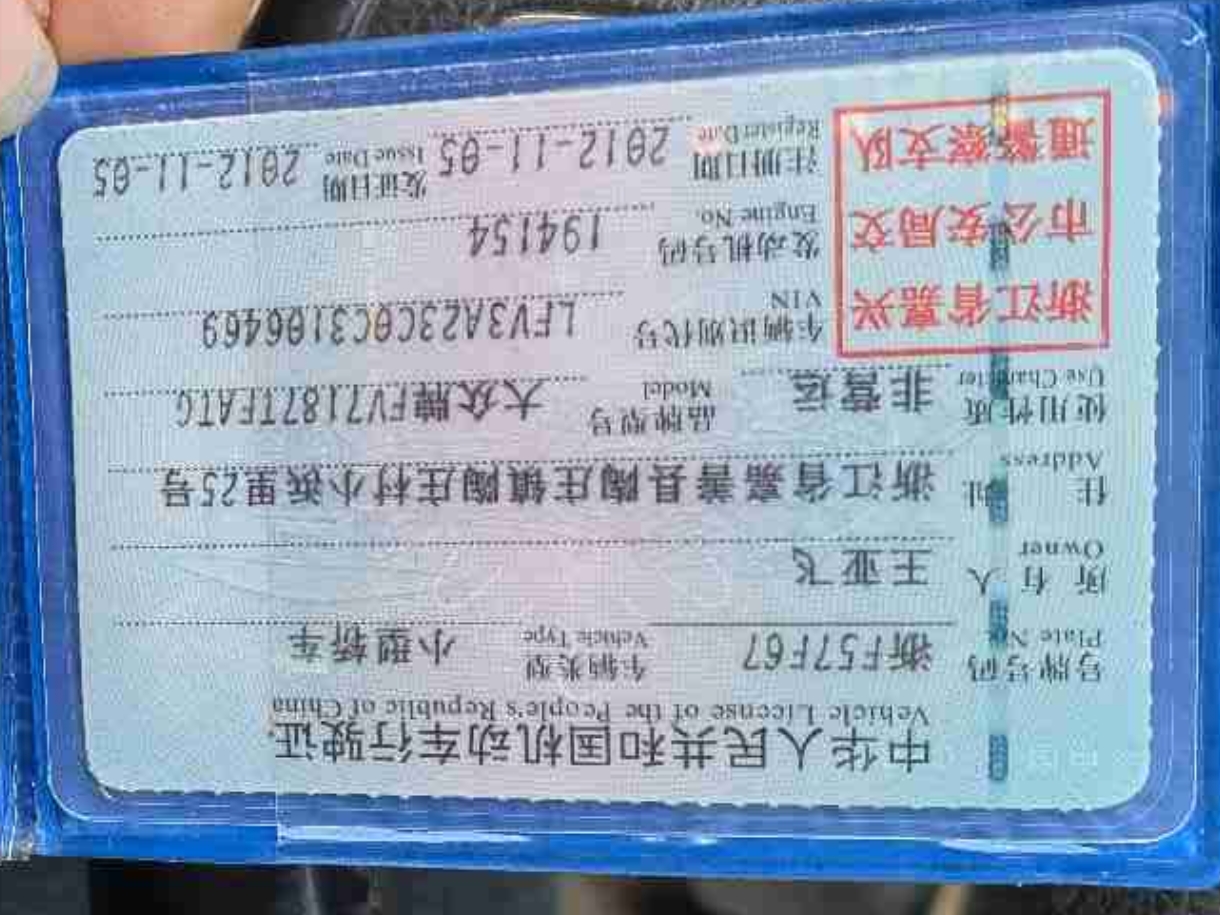 中华人民共和国机动车行驶证
Vehicle License of the People's Republic of China
号牌号码 浙F57F67 车辆类型 小型轿车
Plate No. Vehicle Type
所有人 王亚飞
Owner
住址 浙江省嘉善县陶庄镇陶庄村小浜里25号
Address
使用性质 非营运 品牌型号 大众牌FV7187TFATG
Use Character Model
浙江省嘉兴
市公安局交
通警察支队
车辆识别代号 LFV3A23C0C3106469
VIN
发动机号码 194154
Engine No.
注册日期 2012-11-05 发证日期 2012-11-05
Register Date Issue Date